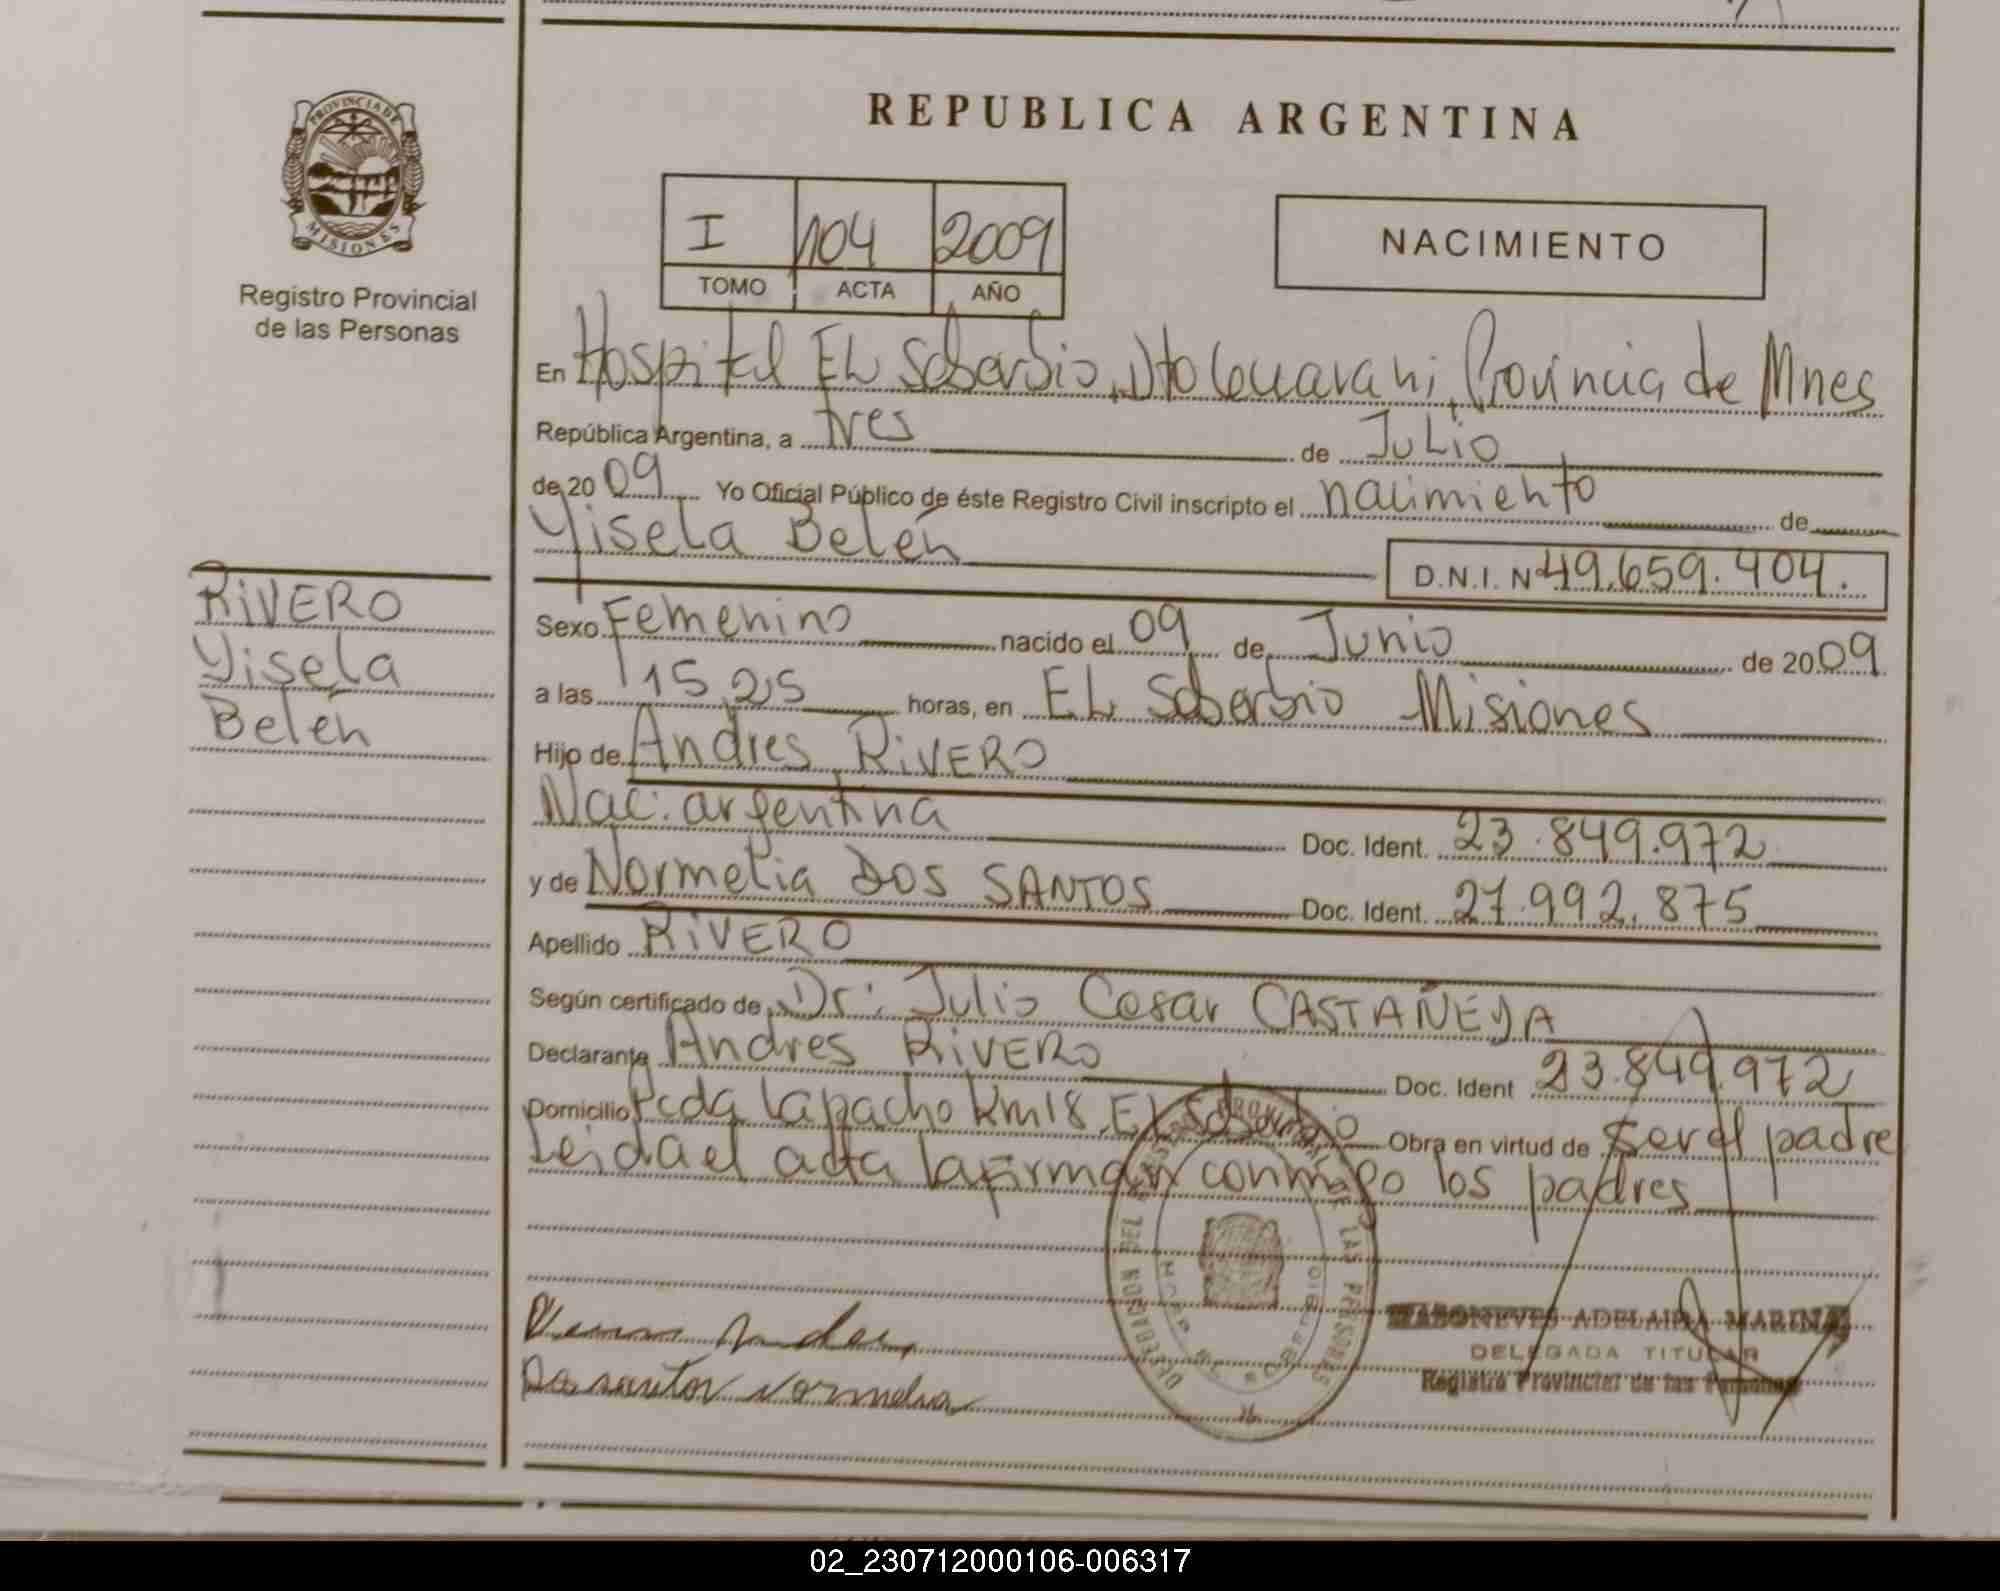 REPUBLICA ARGENTINA
PROVINCIA DE
MISIONES
Registro Provincial
de las Personas
I 104 2009
TOMO ACTA AÑO
NACIMIENTO
En Hospital EL Soberbio, Dto Guarani, Provincia de Mnes
República Argentina, a tres de Julio
de 2009 Yo Oficial Público de éste Registro Civil inscripto el nacimiento de
Yisela Belén
D.N.I. Nº 49.659.404.
RIVERO
Yisela
Belén
Sexo Femenino nacido el 09 de Junio de 2009
a las 15,25 horas, en EL Soberbio Misiones
Hijo de Andres RIVERO
Nac: argentina Doc. Ident. 23.849.972
y de Normelia DOS SANTOS Doc. Ident. 27.992.875
Apellido RIVERO
Según certificado de Dr: Julio Cesar CASTAÑEDA
Declarante Andres RIVERO Doc. Ident 23.849.972
Domicilio Pcda Lapacho Km 18. EL Soberbio Obra en virtud de ser el padre
Leida el acta la firman conmigo los padres
DELEGACION DEL REGISTRO PROVINCIAL DE LAS PERSONAS
Dos santos Normelia
ADELAIRA MARINA
DELEGADA TITULAR
Registro Provincial de las Personas
02_230712000106-006317